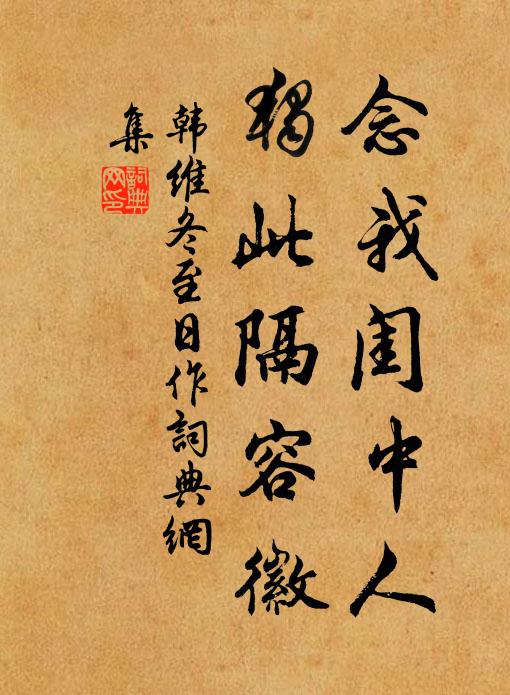 念我闺中人
独此隔容徽
韩维冬至日作詞典網
集
詞典
网印